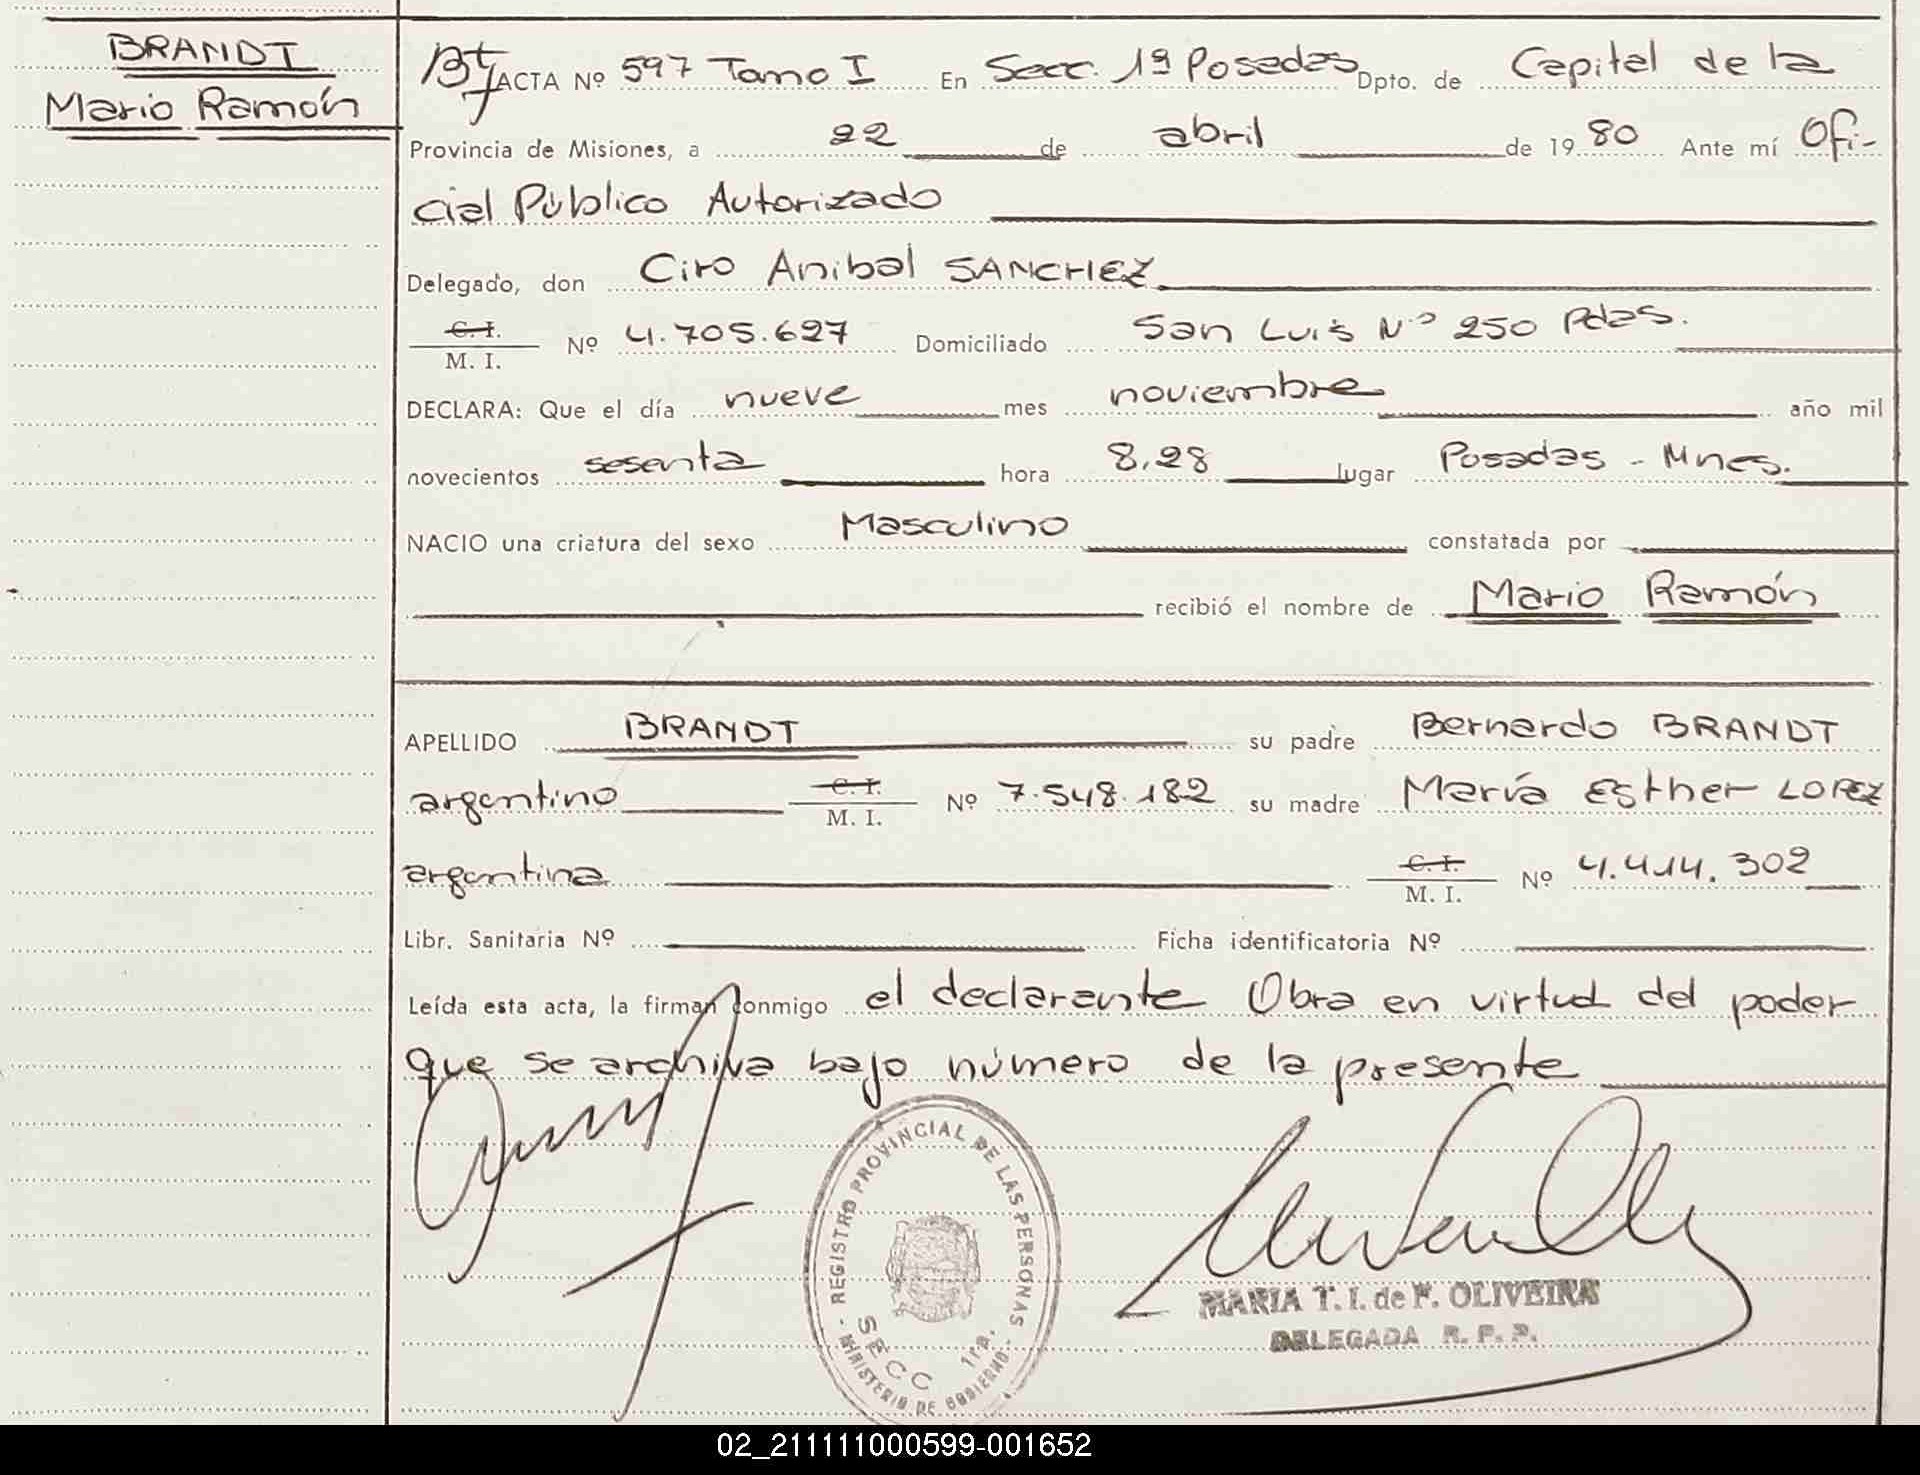 BRANDT
Mario Ramón
ACTA Nº 597 Tomo I En Secc. 1ª Posadas Dpto. de Capital de la
Provincia de Misiones, a 22 de abril de 1980 Ante mí Ofi-
cial Público Autorizado
Delegado, don Ciro Anibal SANCHEZ
C. I.
M. I. Nº 4.705.627 Domiciliado San Luis Nº 250 Pdas.
DECLARA: Que el día nueve mes noviembre año mil
novecientos sesenta hora 8,28 lugar Posadas - Mnes.
NACIO una criatura del sexo Masculino constatada por
recibió el nombre de Mario Ramón
APELLIDO BRANDT su padre Bernardo BRANDT
argentino C. I. M. I. Nº 7.548.182 su madre María Esther LOPEZ
argentina C. I. M. I. Nº 4.414.302
Libr. Sanitaria Nº Ficha identificatoria Nº
Leída esta acta, la firman conmigo el declarante Obra en virtud del poder
que se archiva bajo número de la presente
REGISTRO PROVINCIAL DE LAS PERSONAS
SECC 1ra.
MINISTERIO DE GOBIERNO
MARIA T. I. de F. OLIVEIRA
DELEGADA R. P. P.
02_211111000599-001652